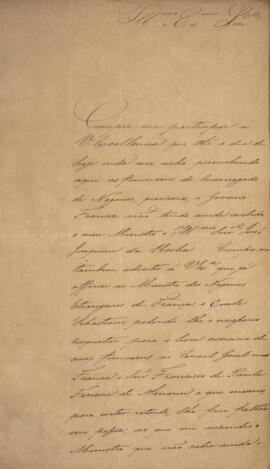 Cumpre me participar á
V.ª Excellencia que thé o dia de
hoje inda me acho preenchendo
aqui as funcsoens de Encarregado
de Negocios, provisorio, o Governo
Francez não tendo ainda recebido
o novo Ministro o Snr José
Joaquim da Rocha Cumpre me
tambem advertir á V.Ex.ª que já
officiei ao Ministro dos Negocios
Estrangeiros de França o Conde
Sebastiani, pedindo lhe o necessario
exequatur para o livre exercicio de
suas funcsoens ao Consul Geral em
França o Snr. Francisco de Paula
Ferreira de Amorim o que mesmo
para evitar retardo lhe fui fallar
em pessoa ao que me respondeo o
Ministro que não sabia ainda